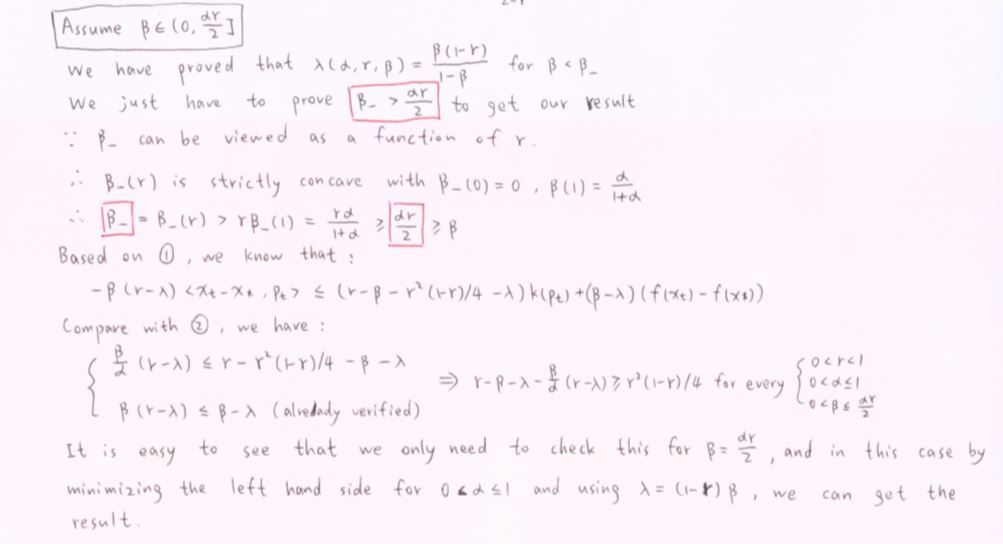 Assume β ∈ (0, αr/2]
We have proved that λ(α, r, β) = β(1-r)/1-β for β < β_
We just have to prove β_ > αr/2 to get our result
∵ β_ can be viewed as a function of r.
∴ β_(r) is strictly concave with β_(0) = 0 , β(1) = α/1+α
∴ β_ = β_(r) > rβ_(1) = rα/1+α ≥ αr/2 ≥ β
Based on ① , we know that :
-β (r-λ) <x_t - x_* , p_t> ≤ (r-β-r²(1-r)/4 -λ) k(p_t) + (β-λ) (f(x_t) - f(x_*))
Compare with ② , we have :
{ β/α (r-λ) ≤ r - r²(1-r)/4 - β - λ
β (r-λ) ≤ β-λ (alredady verified)
⇒ r-β-λ-β/α (r-λ) ≥ r²(1-r)/4 for every { 0<r<1
0<α≤1
0<β≤ αr/2
It is easy to see that we only need to check this for β = αr/2 , and in this case by
minimizing the left hand side for 0<α≤1 and using λ = (1-r) β , we can get the
result.